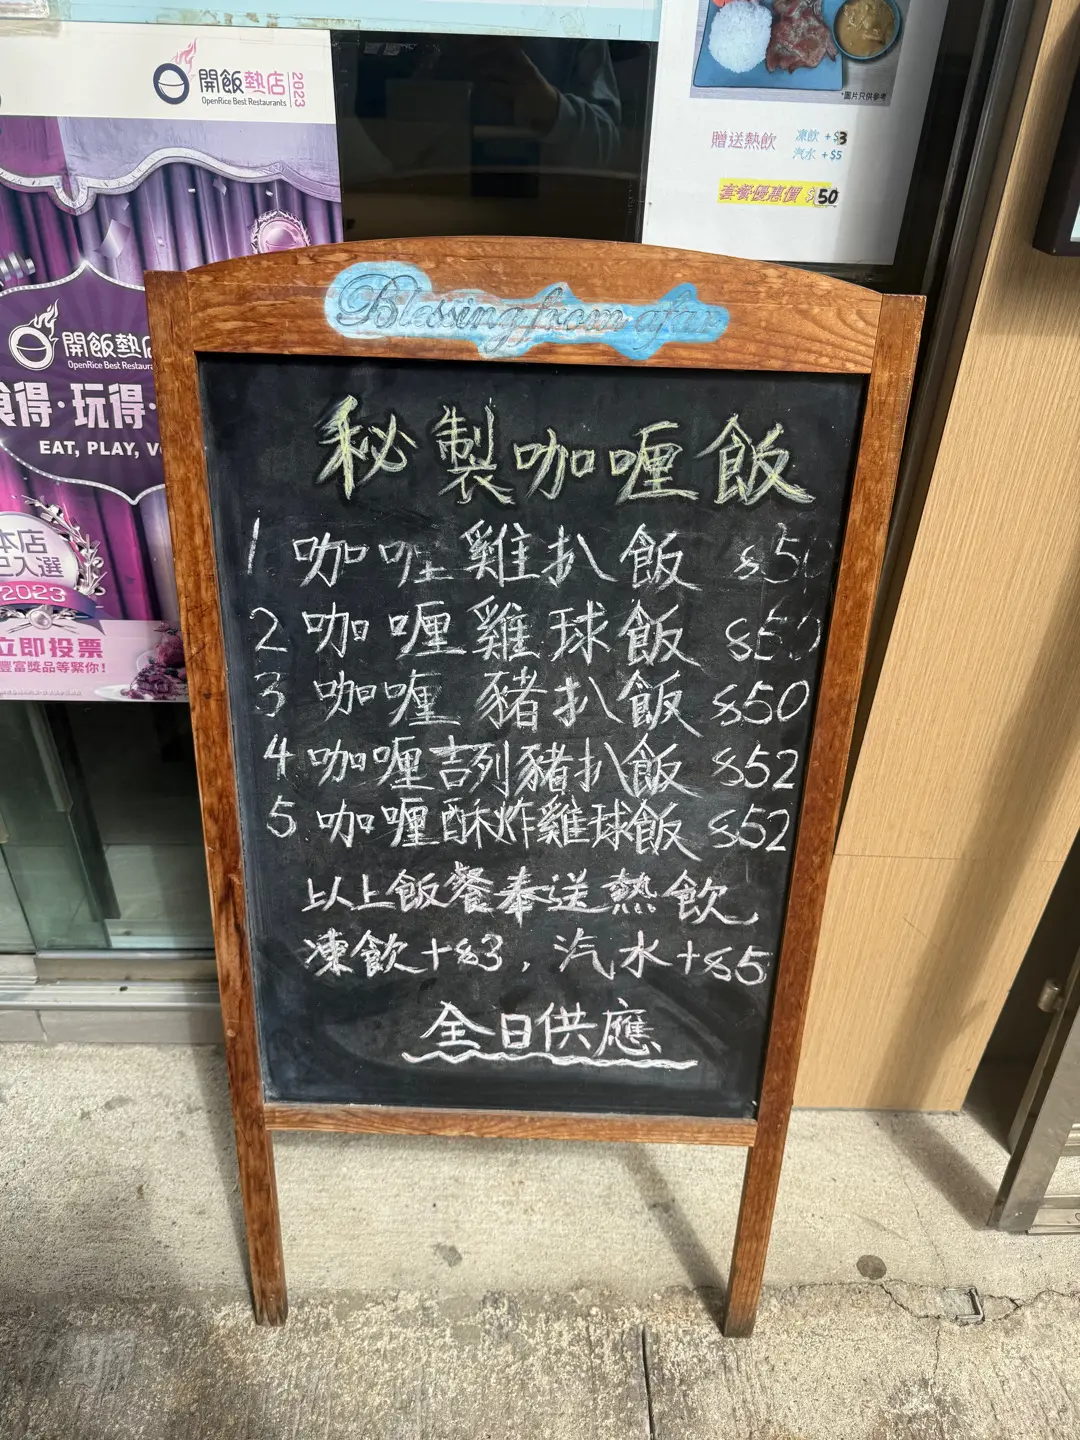 開飯熱店 2023
OpenRice Best Restaurants
*圖片只供參考
贈送熱飲 凍飲 +$3
汽水 +$5
套餐優惠價 $50
開飯熱店
OpenRice Best
食得·玩得·
EAT, PLAY,
本店
已入選
2023
立即投票
豐富獎品等緊你!
Blessing from afar
秘製咖喱飯
1 咖喱雞扒飯 $50
2 咖喱雞球飯 $50
3 咖喱豬扒飯 $50
4 咖喱吉列豬扒飯 $52
5 咖喱酥炸雞球飯 $52
以上飯餐奉送熱飲
凍飲+$3，汽水+$5
全日供應